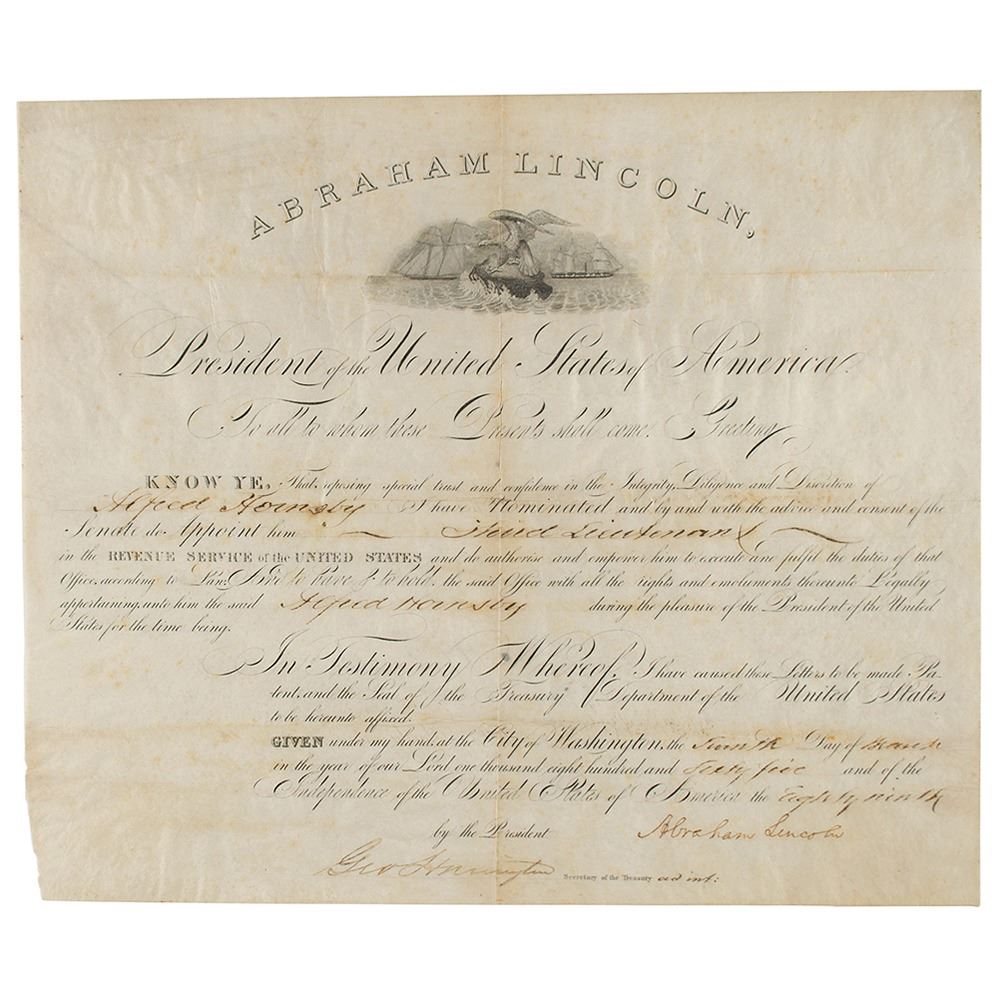 ABRAHAM LINCOLN,
President of the United States of America.
To all to whom these Presents shall come. Greeting
KNOW YE, That, reposing special trust and confidence in the Integrity, Diligence and Discretion of
Alfred Hornsby I have Nominated, and by and with the advice and consent of the
Senate do Appoint him Third Lieutenant
in the REVENUE SERVICE of the UNITED STATES and do authorise and empower him to execute and fulfil the duties of that
Office, according to Law: And to have & to hold, the said Office with all the rights and emoluments thereunto Legally
appertaining, unto him the said Alfred Hornsby during the pleasure of the President of the United
States for the time being.
In Testimony Whereof, I have caused these Letters to be made Pa-
tent, and the Seal of the Treasury Department of the United States
to be hereunto affixed.
GIVEN under my hand, at the City of Washington, the Day of March
in the year of our Lord one thousand eight hundred and Sixty five and of the
Independence of the United States of America the Eighty ninth
by the President Abraham Lincoln
Geo Harrington Secretary of the Treasury ad int: